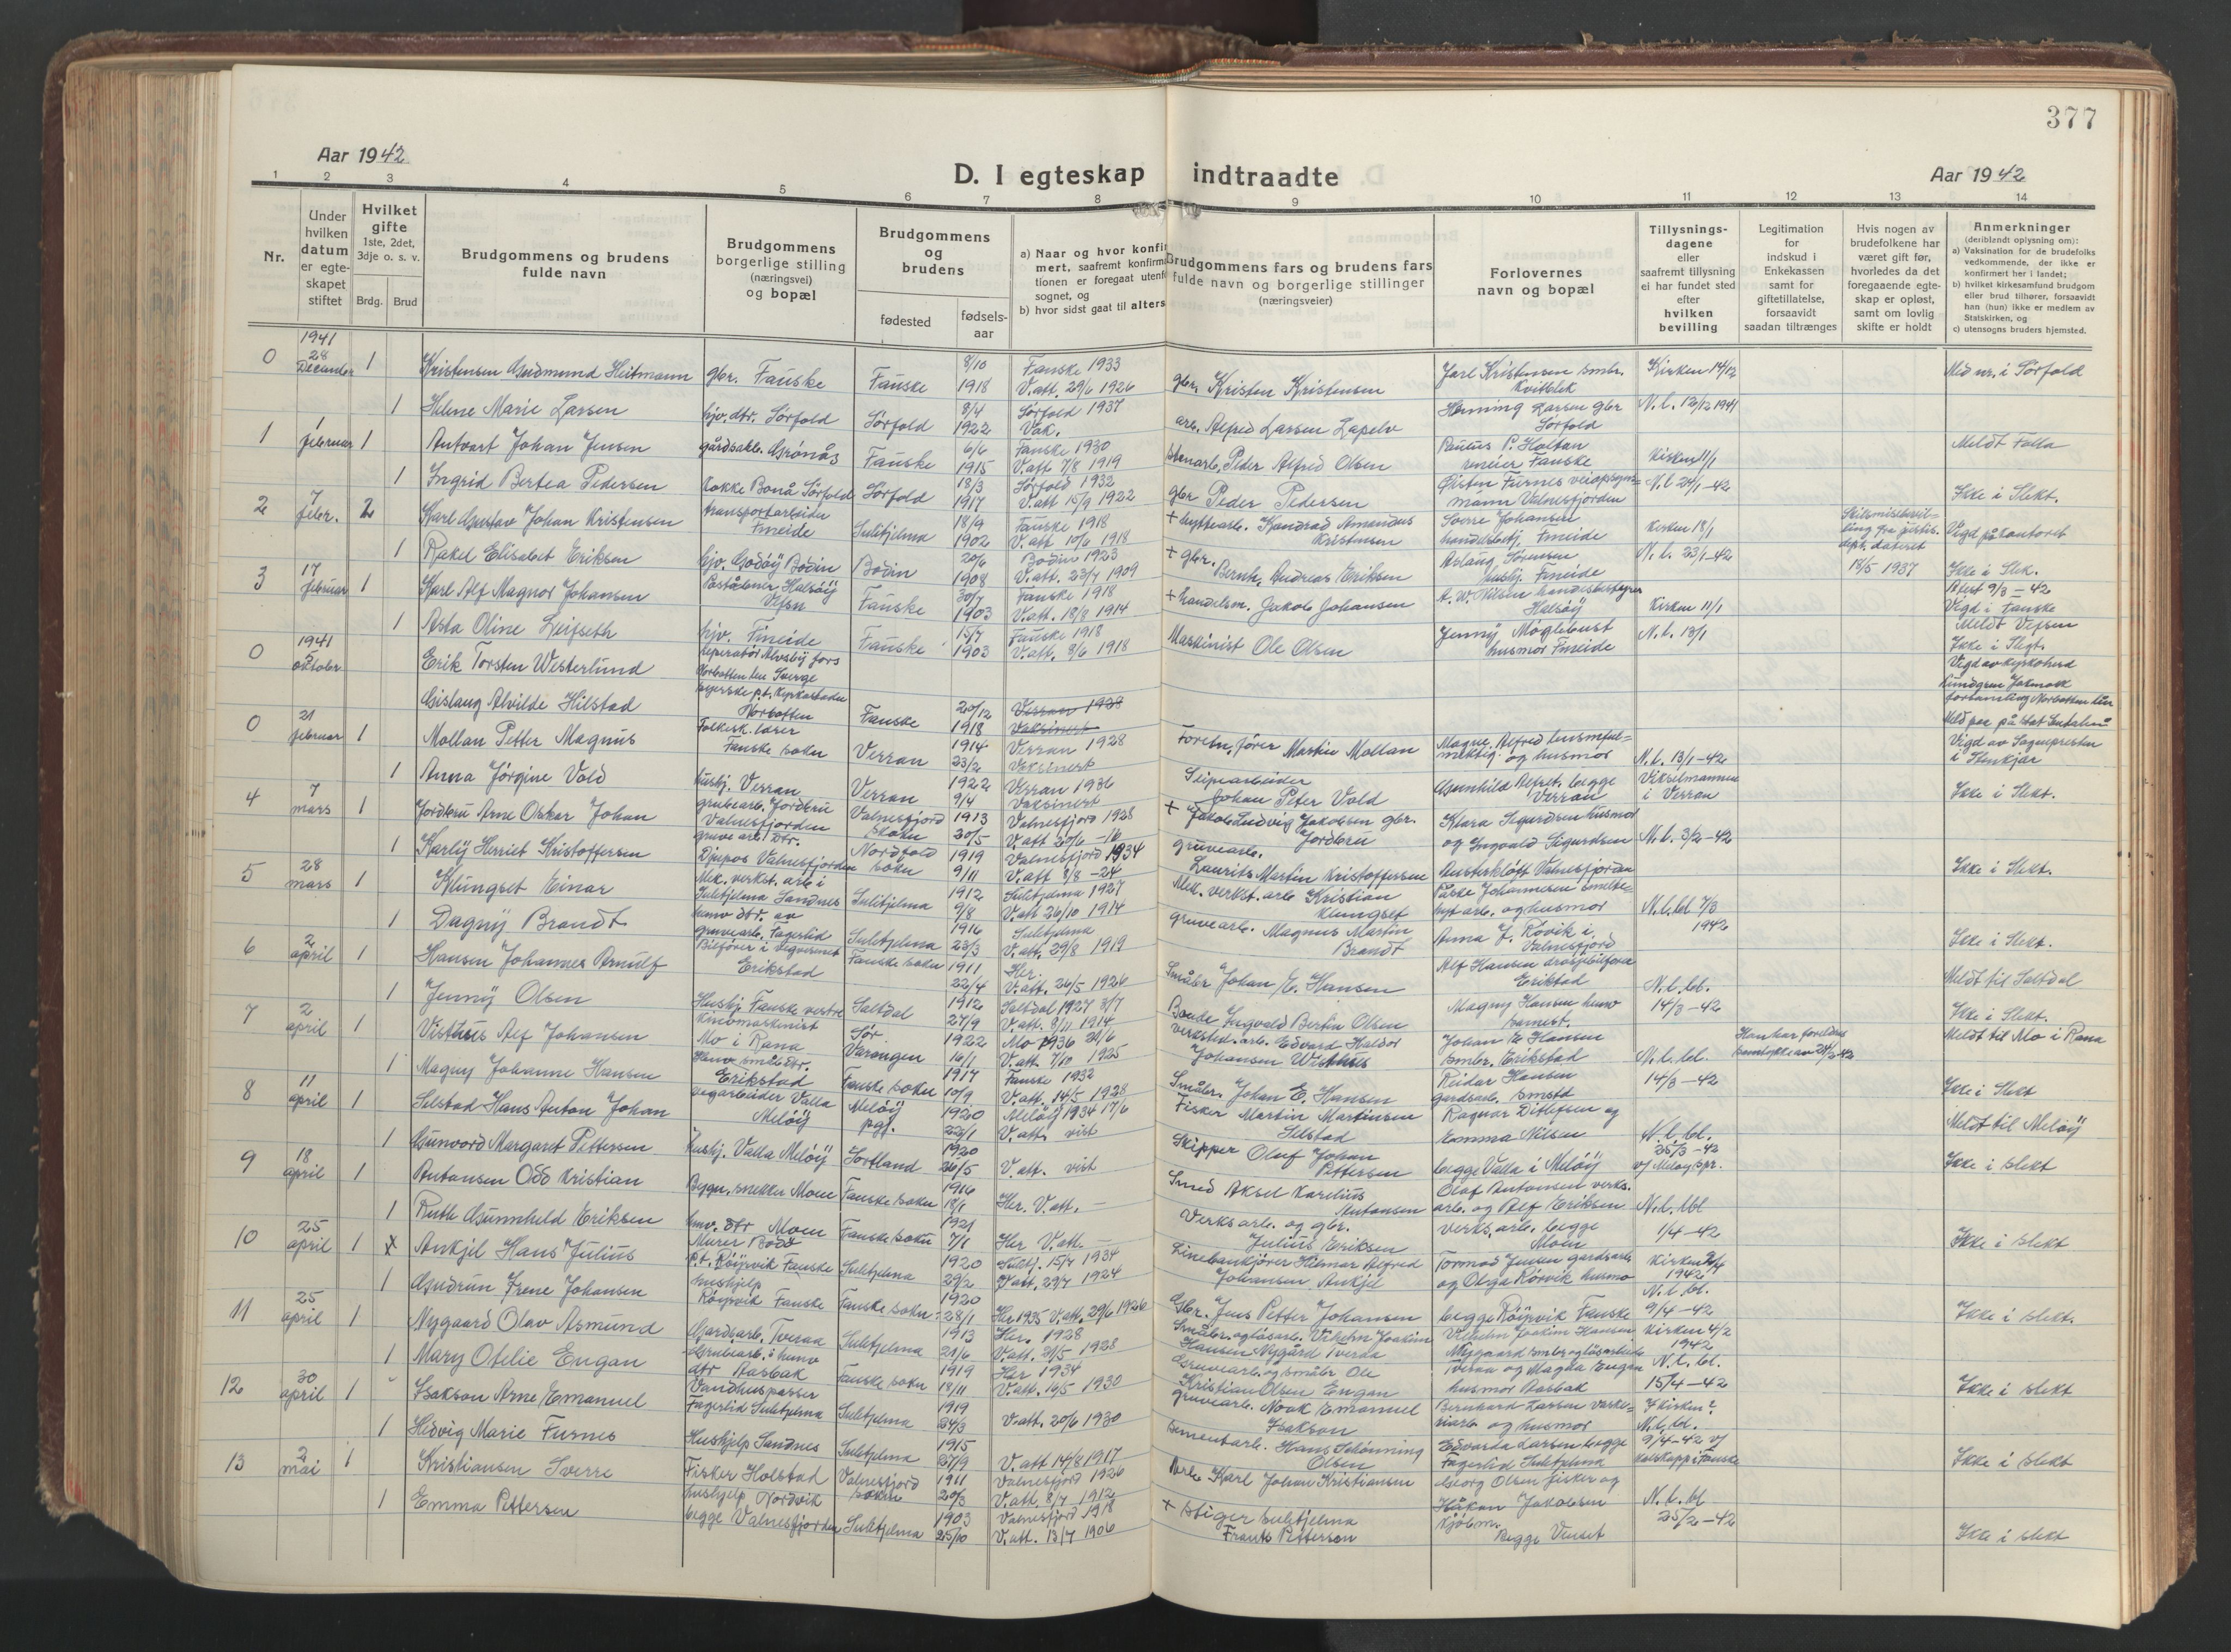 377
Aar 1942
D. I egteskap indtraadte
Aar 1942
1 2 3 4 5 6 7 8 9 10 11 12 13 14
Nr.
Under hvilken datum er egteskapet stiftet
Hvilket gifte 1ste, 2det, 3dje o. s. v.
Brdg. Brud
Brudgommens og brudens fulde navn
Brudgommens borgerlige stilling (næringsvei) og bopæl
Brudgommens og brudens
fødested
fødselsaar
a) Naar og hvor konfirmert, saafremt konfirmationen er foregaat utenfor sognet, og
b) hvor sidst gaat til alters
Brudgommens fars og brudens fars fulde navn og borgerlige stillinger (næringsveier)
Forlovernes navn og bopæl
Tillysningsdagene eller saafremt tillysning ei har fundet sted efter hvilken bevilling
Legitimation for indskud i Enkekassen samt for giftetillatelse, forsaavidt saadan tiltrænges
Hvis nogen av brudefolkene har været gift før, hvorledes da det foregaaende egteskap er opløst, samt om lovlig skifte er holdt
Anmerkninger (deriblandt oplysning om):
a) Vaksination for de brudefolks vedkommende, der ikke er konfirmert her i landet;
b) hvilket kirkesamfund brudgom eller brud tilhører, forsaavidt han (hun) ikke er medlem av Statskirken, og
c) utensogns bruders hjemsted.
0 1941 28 December 1 Kristensen Gudmund Heitmann gbr. Fauske Fauske 8/10 1918 Fauske 1933 V.att. 29/6 1926 gbr. Kristen Kristensen Jarl Kristensen smbr. Kvitblik Kirken 14/12 Med nr. i Sørfold
1 Helene Marie Larsen hjv. dtr. Sørfold Sørfold 8/4 1922 Sørfold 1937 Vak. arb. Alfred Larsen Lapelv Henning Larsen gbr Sørfold N.l. 12/12 1941
1 1 februar 1 Antvart Johan Jensen gårdsarb. Grønås Fauske 6/6 1915 Fauske 1930 V.att 7/8 1919 Stenarb. Peder Alfred Olsen Paulus P. Holtan Fauske Kirken 11/1 Meldt Folla
1 Ingrid Bertea Pedersen kokke Bonå Sørfold Sørfold 18/3 1917 Sørfold 1932 V.att 15/9 1922 gbr Peder Pedersen Øisten Furnes veiopsynsmann Valnesfjorden N.l. 24/1-42 Ikke i Slekt.
2 7 febr. 2 Karl Gustav Johan Kristensen transportarbeider Fineide Sulitjelma 18/9 1902 Fauske 1918 V.att 10/6 1918 + hyttearb. Konrad Amandus Kristensen Sverre Johansen handelsbetj. Fineide Kirken 18/1 Skilsmissebevilling fra justis. dept. dateret 18/5 1937 Vigd på kontoret
1 Rakel Elisabet Eriksen hjv. Godøy Bodin Bodin 20/6 1908 Bodin 1923 V.att. 23/7 1909 + gbr. Bernh. Andreas Eriksen Aslaug Sørensen husbj. Fineide N.l. 23/1-42 Ikke i Slek.
3 17 februar 1 Karl Alf Magnor Johansen Poståbner Halsøy Vefsn Fauske 30/7 1903 Fauske 1918 V.att. 18/8 1914 + handelsm. Jakob Johansen A. W. Nilsen handelsbestyrer Halsøy Kirken 11/1 Atest 9/3-42 Vigd i Fauske Meldt Vefsen
1 Asta Oline Leifseth hjv. Fineide Fauske 15/7 1903 Fauske 1918 V.att. 8/6 1918 Maskinist Ole Olsen Jenny Møglebust husmor Fineide N.l. 13/1 Ikke i Slegt.
0 1941 5 oktober Erik Torsten Westerlund Reperatør Alvsby fors Norbotten len Sverge Vigd av kyrkoherd Lundgren Jokmokk forsamling Norbotten län
Gislaug Alvilde Hilstad p.t. Kyrkostaden Norbotten Fauske 20/12 1918 Verran 1928 Vaksinert
0 21 februar 1 Mollan Petter Magnus Folkesk. lærer Fauske sokn Verran 1914 23/2 Verran 1928 Vaksinert Foretn.fører Martin Mollan Magne Alfred og husmor N.l. 13/1-42 Vigd av Sognepresten i Stenkjær
1 Anna Jørgine Vold husbj. Verran Verran 1922 9/4 Verran 1936 Vaksinert Johan Peter Vold Gunhild begge Verran Vikselmannen i Verran Ikke i Slekt.
4 7 mars 1 Jordbru Arne Oskar Johan grubearb. Jordbru Valnesfjorden Valnesfjord sokn 1913 20/5 Valnesfjord 1928 V.att 20/6-16 + Jakob Ludvig Jakobsen gbr. Jordbru Klara Sigurdsen husmor og Ingvald Sigurdsen N.l. 3/2-42
1 Karly Herriet Kristoffersen gruve arb. dtr. Djupos Valnesfjorden Nordfold sokn 1919 9/11 Valnesfjord 1934 V.att 8/8-24 gruvearb. Laurits Martin Kristoffersen Austerkløft Valnesfjorden Ikke i Slekt.
5 28 mars 1 Klungset Einar Mek. verkst. arb i Sulitjelma Sandnes Sulitjelma 1912 9/8 Sulitjelma 1927 V.att 26/10 1914 Mek. verkst. arb Kristian Klungset Påske Johannesen smeltehyt arb. og husmor N.l.bl 7/3 1942
1 Dagny Brandt hmv dtr. av gruvearb. Fagerlid Sulitjelma 1916 23/3 Sulitjelma V.att. 29/8 1919 gruvearb. Magnus Martin Brandt Anna J. Røvik i Valnesfjord Ikke i Slekt.
6 2 april 1 Hansen Johannes Arnulf Bilfører i Erikstad Fauske sokn 1911 22/4 Her. V.att. 26/5 1926 Småbr Johan E. Hansen Alf Hansen drosjebilfører Erikstad N.l.bl. 14/3-42 Meldt til Saltdal
1 Jenny Olsen Husbj Fauske vestre Saltdal 1912 27/9 Saltdal 1927 3/7 V.att. 8/11 1914 Bonde Ingvald Bertin Olsen Magny Hansen hmv samest. Ikke i Slekt.
7 2 april 1 Visthus Alf Johansen Kinomaskinist Mo i Rana Sør Varangen 1922 16/1 Mo 1936 21/6 V.att. 7/10 1925 verksted. arb. Edvard Haldor Johansen Wisthus Johan E Hansen smbr. Erikstad N.l.bl. 14/3-42 Han har foreldres samtykke av 24/3-42 Meldt til Mo i Rana
1 Magny Johanne Hansen Hmv småb dtr. Erikstad Fauske sokn 1917 10/9 Fauske 1932 V.att. 14/5 1928 Småbr. Johan E. Hansen Reidar Hansen gardsarb. smstd Ikke i Slekt
8 11 april 1 Selstad Hans Anton Johan vegarbeider Valla Meløy Meløy pgj. 1920 22/1 Meløy 1934 17/6 V.att. vist Fisker Martin Martinsen Selstad Ragnar Ditlefsen og Emma Nilsen N.l.bl. 25/3-42 v/ Meløy spr. Meldt til Meløy
1 Gunvord Margaret Pettersen Hushj. Valla Meløy Sortland 1920 26/5 V.att. vist Skipper Oluf Johan Pettersen begge Valla i Meløy Ikke i slekt
9 18 april 1 Antonsen Odd Kristian Bygn. snekker Moen Fauske sokn 1916 18/1 Her. V.att. — Smed Aksel Karelius Antonsen Olaf Antonsen verks. arb. og Alf Eriksen verks. arb. begge Moen N.l.bl 1/4-42
1 Ruth Gunnheld Eriksen hmv. dtr Moen Fauske sokn 1921 7/1 Her V.att. — Verksarb. og gbr. Julius Eriksen Ikke i slekt
10 25 april 1 x Ankjil Hans Julius Murer Bodø p.t. Røyrvik Fauske Sulitjelma 1920 29/2 Sulitj. 15/7 1934 V.att. 29/7 1924 Linebankjører Hilmar Alfred Johansen Ankjil Tormod Jensen gardsarb og Olga Rørvik husmo begge Røyrvik Fauske Kirken 9/4 1942 N.l.bl. 9/4-42
1 Gudrun Irene Johansen hushjelp Røyrvik Fauske Fauske sokn 1920 28/1 Her 1935 V.att. 29/6 1926 Gbr. Jens Petter Johansen Ikke i slekt.
11 25 april 1 Nygaard Olav Asmund Gardsarb. Tveraa Sulitjelma 1913 21/6 Her. 1928 V.att. 21/5 1928 Småbr. og løsarb. Vilhelm Joakim Hansen Nygård Tveraa Vilhelm Joakim Hansen Nygaard smbr og løsarbeide Tveraa og Magda Engan husmor Aasbak Kirken 4/2 1942 N.l.bl. 15/4-42
1 Mary Otelie Engan Grubearb. i hmv dtr Aasbak Fauske sokn 1919 18/11 Her 1934 V.att. 16/5 1930 Gruvearb. og småbr Ole Kristian Olsen Engan Ikke i slekt
12 30 april 1 Isakson Arne Emanuel Vandhuspasser Fagerlid Sulitjelma Sulitjelma 1919 24/3 V.att. 20/6 1930 gruvearb. Noak Emanuel Isakson Bernhard Larsen vaskeriarb og husmor Edvarda Larsen begge Fagerlid Sulitjelma I kirken? N.l.bl. 9/4-42 v/ Fauske
1 Hedvig Marie Furnes Hushjelp Sandnes Sulitjelma 1915 27/9 V.att 14/8 1917 sementarb. Hans Schønning Olsen Ikke i slekt
13 2 mai 1 Kristiansen Sverre Fisker Holstad Valnesfjord sokn 1911 20/3 Valnesfjord 1926 V.att. 8/7 1912 Arb Karl Johan Kristiansen Georg Olsen fisker og Håkon Jakobsen kjøbm. Begge Venset N.l.bl 25/2-42
1 Emma Pettersen hushjelp Nordvik begge Valnesfjorden Sulitjelma 1903 25/10 Valnesfjord 1918 V.att. 13/7 1906 + Stiger Sulitjelma Frants Petterson Ikke i slekt